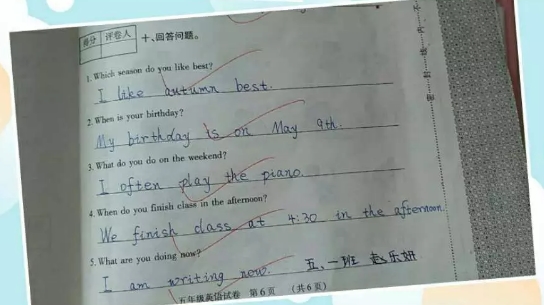 得分 评卷人 十、回答问题。
1. Which season do you like best?
I like autumn best.
2. When is your birthday?
My birthday is on May 9th.
3. What do you do on the weekend?
I often play the piano.
4. When do you finish class in the afternoon?
We finish class at 4:30 in the afternoon.
5. What are you doing now?
I am writing now. 五,一班 赵乐妍
五年级英语试卷 第6页 (共6页)